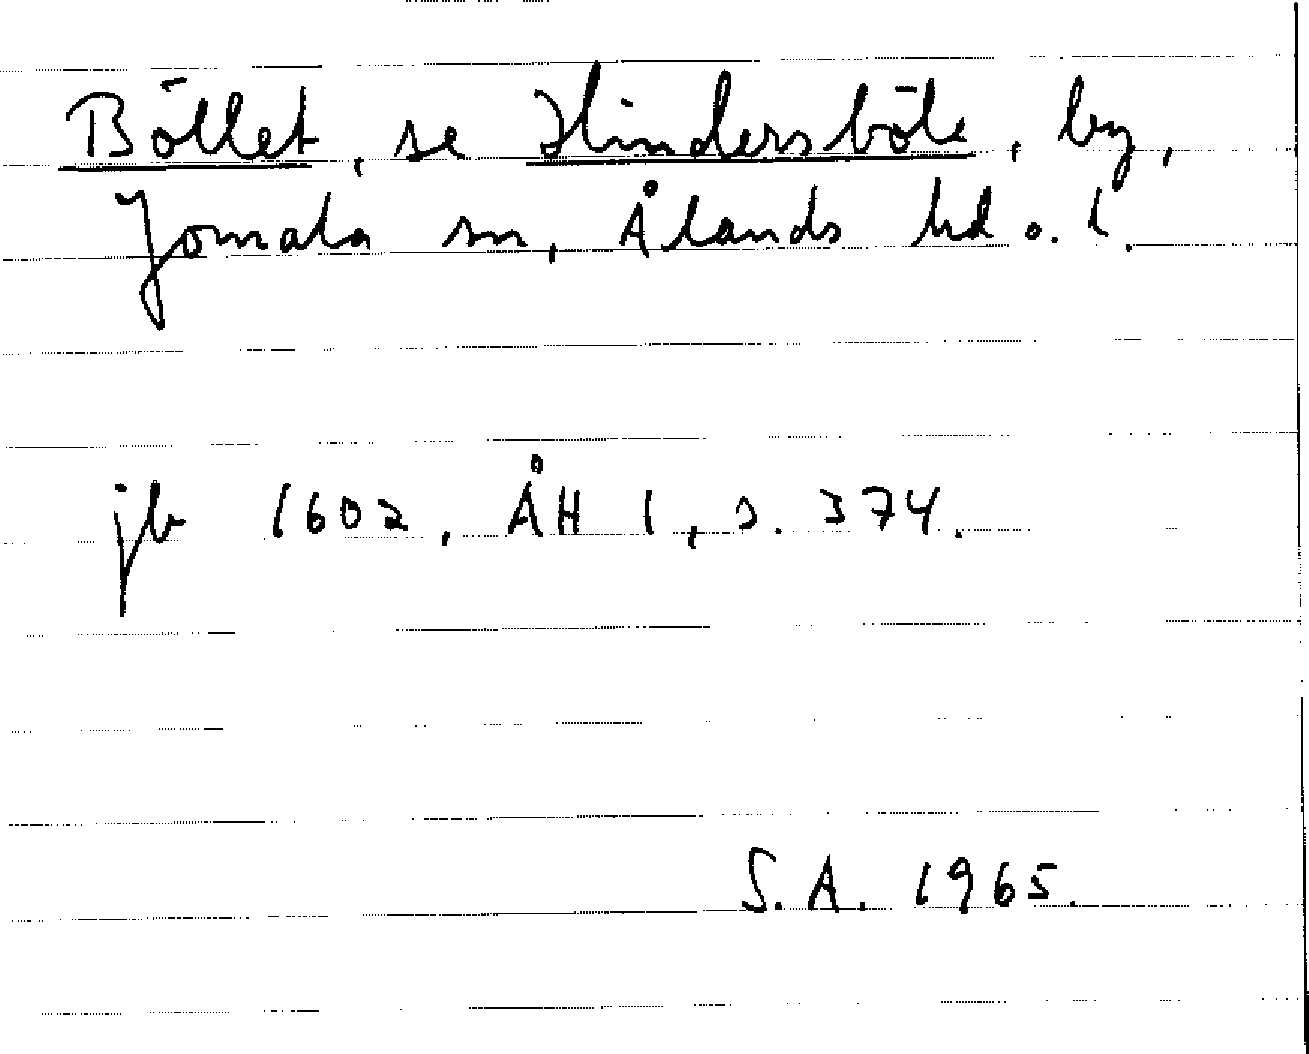 Böllet, se Hindersböle, by,
Jomala sn, Ålands hd o. l.
jb 1602, ÅH 1, s. 374.
S.A. 1965.